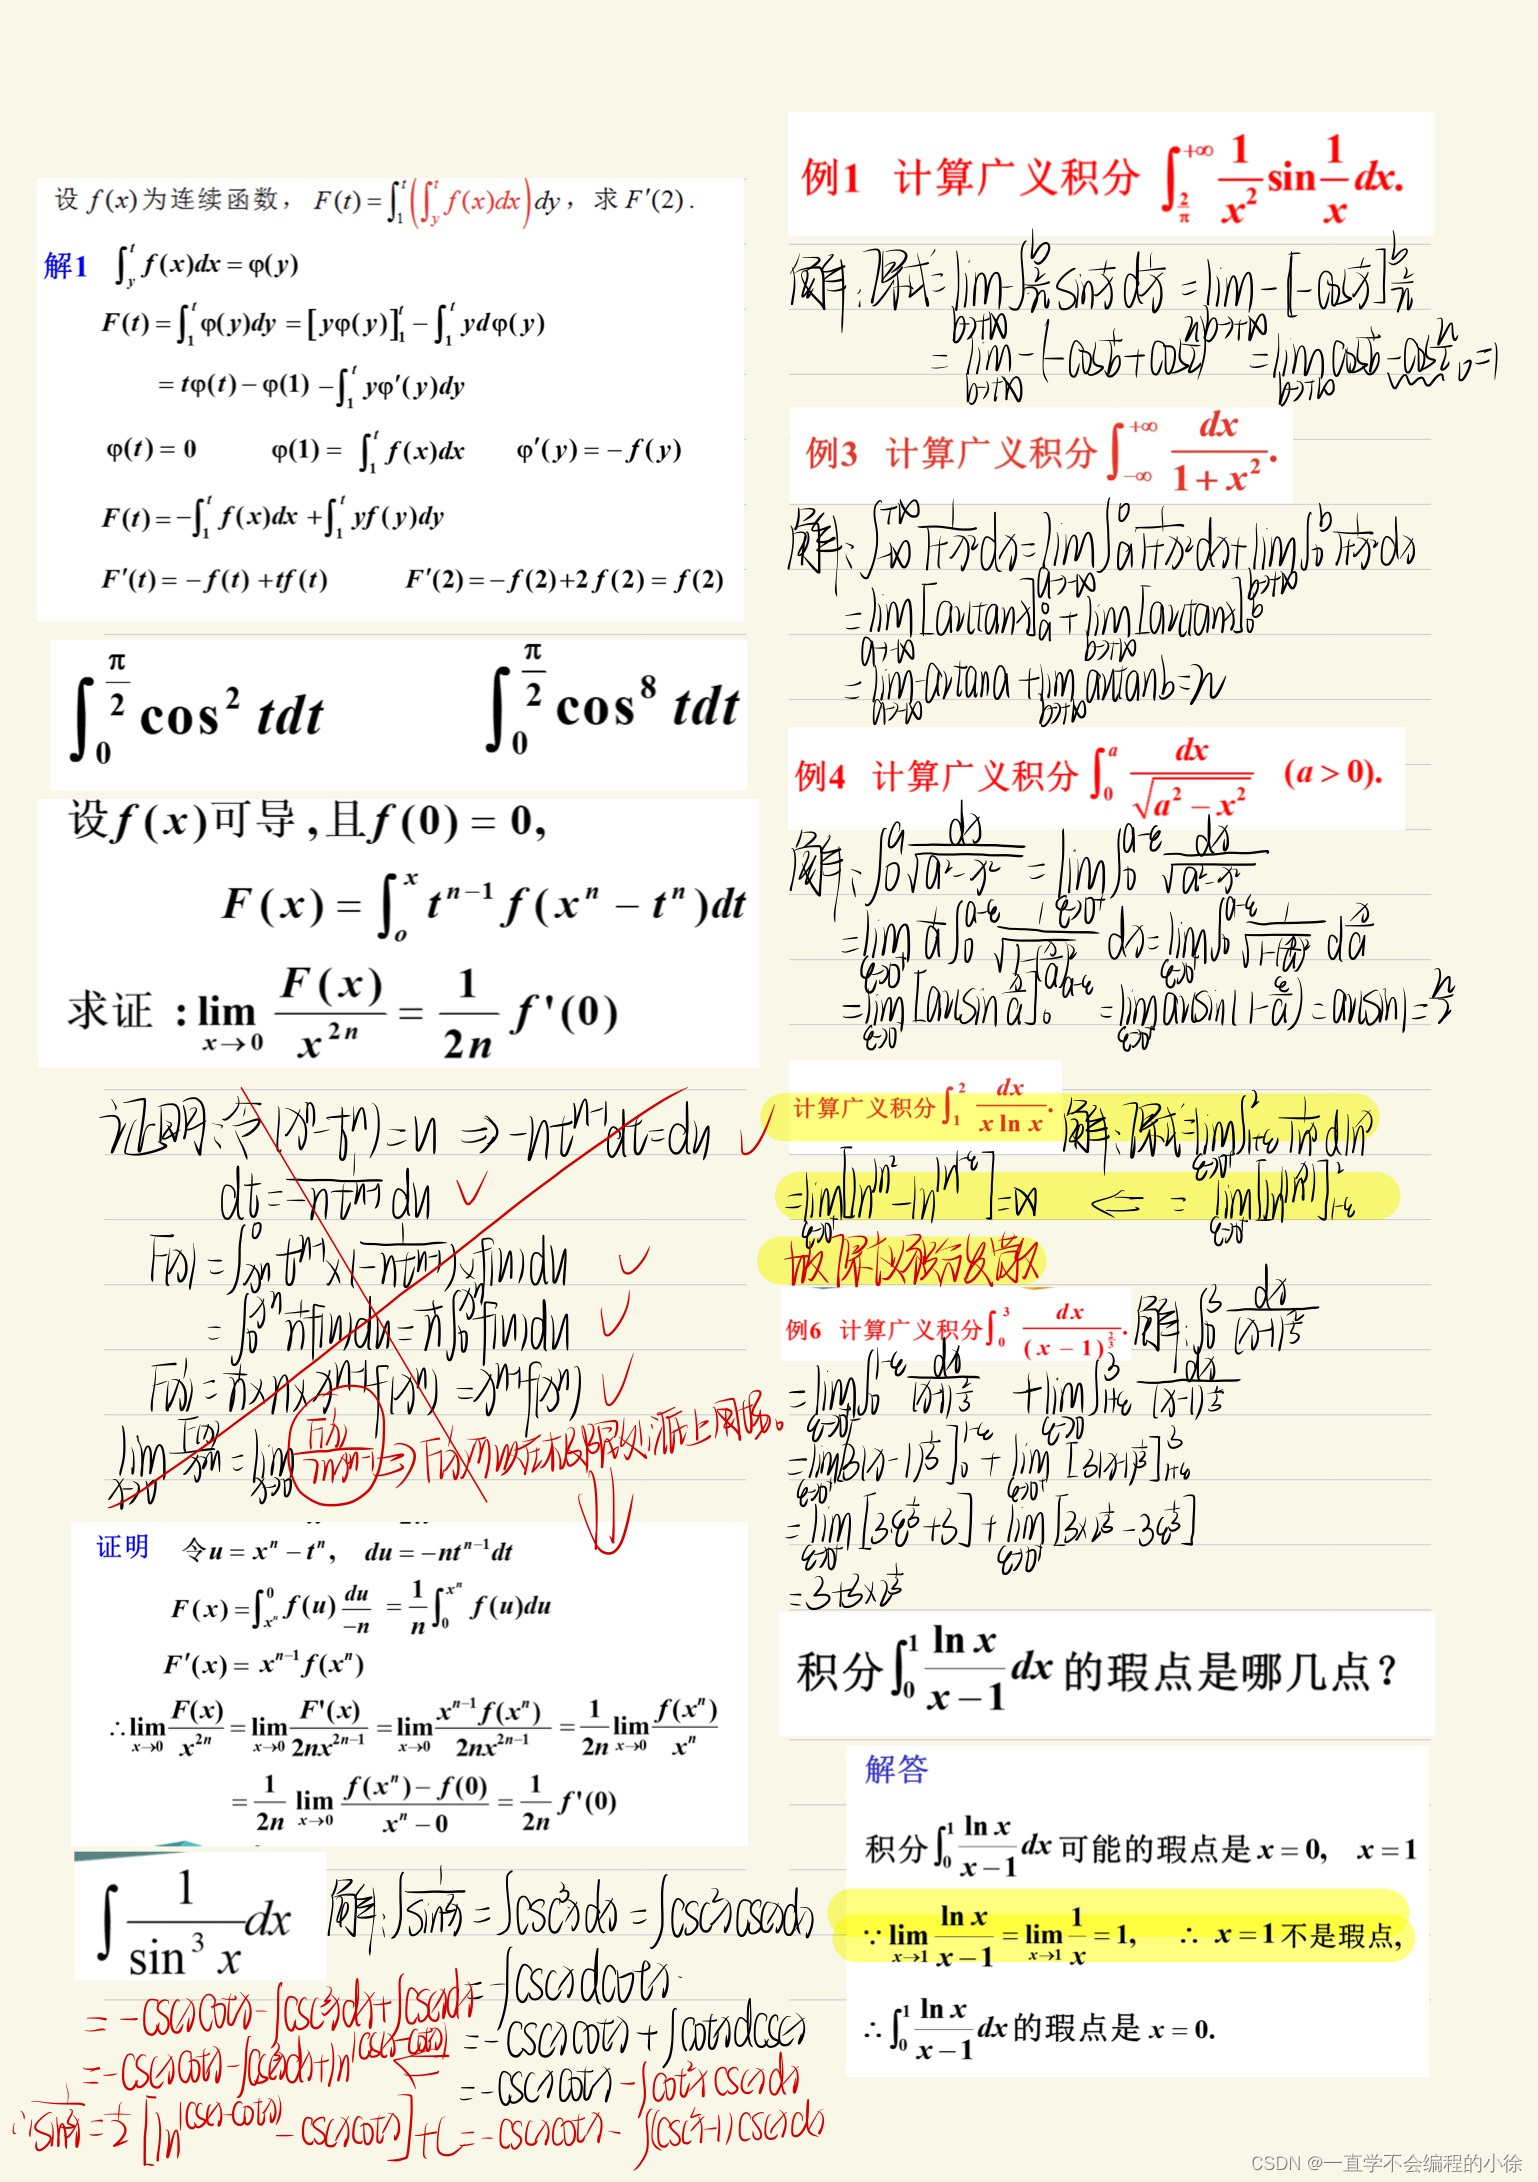 设 f(x)为连续函数，F(t)=∫₁ᵗ(∫ᵧᵗ f(x)dx)dy，求 F′(2).
解1 ∫ᵧᵗ f(x)dx = φ(y)
F(t)=∫₁ᵗ φ(y)dy = [yφ(y)]₁ᵗ − ∫₁ᵗ ydφ(y)
= tφ(t) − φ(1) − ∫₁ᵗ yφ′(y)dy
φ(t) = 0 φ(1) = ∫₁ᵗ f(x)dx φ′(y) = − f(y)
F(t) = −∫₁ᵗ f(x)dx + ∫₁ᵗ yf(y)dy
F′(t) = − f(t) +tf(t) F′(2) = −f(2)+2f(2) = f(2)
∫₀^(π/2) cos² tdt ∫₀^(π/2) cos⁸ tdt
设f(x)可导,且f(0) = 0,
F(x) = ∫ₒˣ tⁿ⁻¹ f(xⁿ − tⁿ)dt
求证 : lim x→0 F(x)/x²ⁿ = 1/(2n) f'(0)
证明:令(xⁿ−tⁿ)=u ⇒ −ntⁿ⁻¹dt=du ✓
dt= 1/(−ntⁿ⁻¹) du ✓
F(x) = ∫_(xⁿ)^0 tⁿ⁻¹×(1/(−ntⁿ⁻¹))×f(u)du ✓
= ∫₀^(xⁿ) 1/n f(u)du = 1/n ∫₀^(xⁿ) f(u)du ✓
F′(x) = 1/n×n×xⁿ⁻¹f(xⁿ) = xⁿ⁻¹f(xⁿ) ✓
lim x→0 F(x)/x²ⁿ = lim x→0 F′(x)/(2nx²ⁿ⁻¹) ⇒ F′(x)可以在极限处派上用场。
证明 令u = xⁿ − tⁿ, du = −ntⁿ⁻¹dt
F(x) = ∫_(xⁿ)^0 f(u) du/−n = 1/n ∫₀^(xⁿ) f(u)du
F′(x) = xⁿ⁻¹f(xⁿ)
∴ lim x→0 F(x)/x²ⁿ = lim x→0 F'(x)/2nx²ⁿ⁻¹ = lim x→0 xⁿ⁻¹f(xⁿ)/2nx²ⁿ⁻¹ = 1/2n lim x→0 f(xⁿ)/xⁿ
= 1/2n lim x→0 (f(xⁿ) − f(0))/(xⁿ − 0) = 1/2n f'(0)
∫ 1/sin³ x dx 解:∫1/sin³x = ∫csc³xdx = ∫csc²xcscxdx
= −∫cscxdcotx
= −cscxcotx + ∫cotxdcscx
= −cscxcotx − ∫cot²xcscxdx
= −cscxcotx − ∫(csc²x−1)cscxdx
= −cscxcotx − ∫csc³xdx + ∫cscxdx
= −cscxcotx − ∫csc³xdx + ln|cscx−cotx| ←
∴∫1/sin³x = 1/2 [ln|cscx−cotx| − cscxcotx]+C
例1 计算广义积分 ∫_(2/π)^(+∞) 1/x² sin 1/x dx.
解:原式= lim b→+∞ −∫_(2/π)^b sin 1/x d 1/x = lim b→+∞ −[−cos 1/x]_(2/π)^b
= lim b→+∞ −(−cos 1/b + cos π/2) = lim b→+∞ cos 1/b − cos π/2 0 =1
例3 计算广义积分 ∫_(−∞)^(+∞) dx/(1+x²).
解:∫_(−∞)^(+∞) 1/(1+x²) dx = lim a→−∞ ∫ₐ⁰ 1/(1+x²) dx + lim b→+∞ ∫₀ᵇ 1/(1+x²) dx
= lim a→−∞ [arctanx]ₐ⁰ + lim b→+∞ [arctanx]₀ᵇ
= lim a→−∞ −arctana + lim b→+∞ arctanb = π
例4 计算广义积分 ∫₀ᵃ dx/√(a² − x²) (a > 0).
解:∫₀ᵃ dx/√(a²−x²) = lim ε→0⁺ ∫₀^(a−ε) dx/√(a²−x²)
= lim ε→0⁺ 1/a ∫₀^(a−ε) 1/√(1−(x/a)²) dx = lim ε→0⁺ ∫₀^(a−ε) 1/√(1−(x/a)²) d x/a
= lim ε→0⁺ [arcsin x/a]₀^(a−ε) = lim ε→0⁺ arcsin(1−ε/a) = arcsin1 = π/2
计算广义积分 ∫₁² dx/(x ln x). 解:原式= lim ε→0⁺ ∫_(1+ε)^2 1/lnx dlnx
= lim ε→0⁺ [ln|lnx|]_(1−ε)^2
⇐ = lim ε→0⁺ [ln ln2 − ln ln 1−ε] = ∞
故原广义积分发散
例6 计算广义积分 ∫₀³ dx/(x − 1)^(2/3). 解:∫₀³ dx/(x−1)^(2/3)
= lim ε→0⁺ ∫₀^(1−ε) dx/(x−1)^(2/3) + lim ε→0 ∫_(1+ε)^3 dx/(x−1)^(2/3)
= lim ε→0⁺ [3(x−1)^(1/3)]₀^(1−ε) + lim ε→0⁺ [3(x−1)^(1/3)]_(1+ε)^3
= lim ε→0⁺ [3ε^(1/3)+3] + lim ε→0⁺ [3×2^(1/3) − 3ε^(1/3)]
= 3+3×2^(1/3)
积分∫₀¹ ln x/(x−1) dx的瑕点是哪几点?
解答
积分∫₀¹ ln x/(x−1) dx可能的瑕点是 x = 0, x = 1
∵ lim x→1 ln x/(x−1) = lim x→1 1/x = 1, ∴ x = 1不是瑕点,
∴ ∫₀¹ ln x/(x−1) dx的瑕点是 x = 0.
CSDN @一直学不会编程的小徐